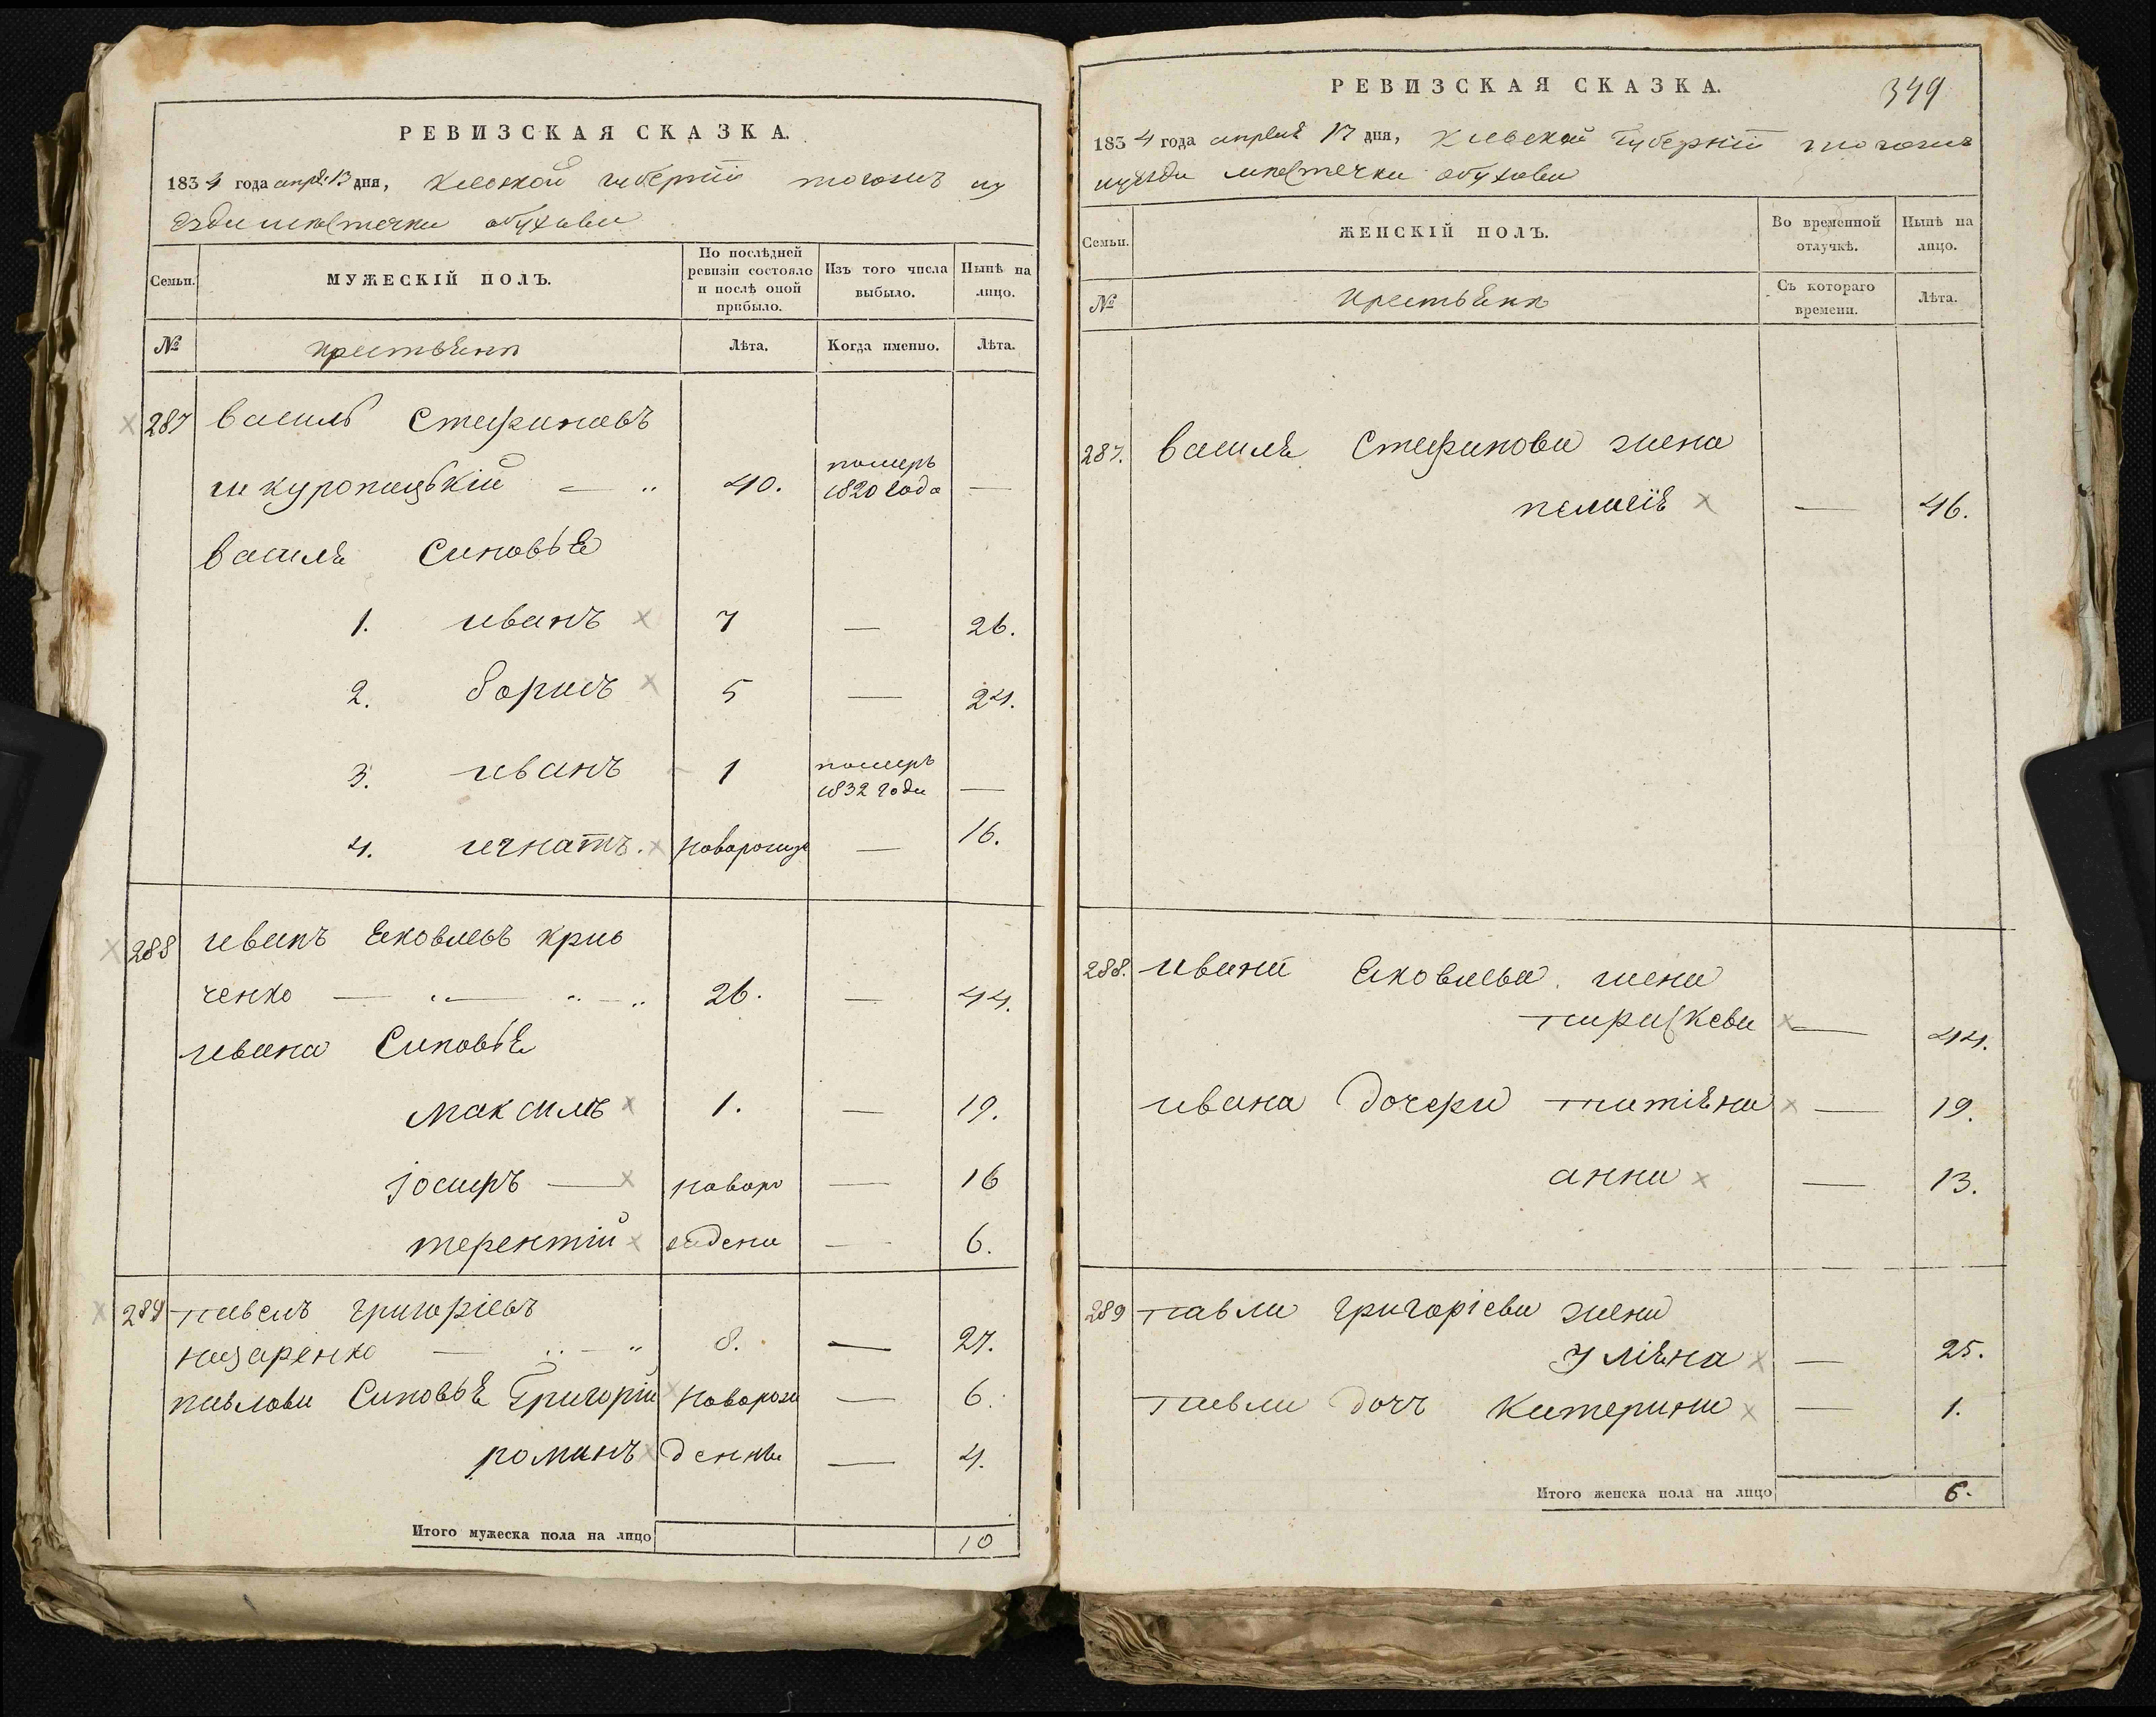 РЕВИЗСКАЯ СКАЗКА.
1834 года апрѣ. 13 дня, Кіевской губерніи тогожъ уу
ѣзда мѣстечка обухова
Семьи.
МУЖЕСКІЙ ПОЛЪ.
По послѣдней ревизіи состояло и послѣ оной прибыло.
Изъ того числа выбыло.
Нынѣ на лицо.
№
крестьяне
Лѣта.
Когда именно.
Лѣта.
287 василь Стефановъ
шкуропацькій — 40. померъ 1820 года —
василя Синовья
1. иванъ 7 — 26.
2. борисъ 5 — 24.
3. иванъ 1 померъ 1832 года —
4. игнатъ. — 16.
288 иванъ яковлевъ крив
ченко — 26. — 44.
ивана Синовья
максимъ 1. — 19.
іосифъ — новоро — 16
терентій — 6.
289 павелъ григоріевъ
назаренко — 8. — 27.
павлова Синовья Григорій новорож — 6.
романъ — 4.
Итого мужеска пола на лицо 10
РЕВИЗСКАЯ СКАЗКА. 349
1834 года апреля 13 дня, Кіевской губерніи тогожъ
уѣзда мѣстечка обухова
Семьи.
ЖЕНСКІЙ ПОЛЪ.
Во временной отлучкѣ.
Нынѣ на лицо.
№
крестьяне
Съ котораго времени.
Лѣта.
287. василя Стефанова жена
пелагія — 46.
288. ивана яковлева жена
параскева — 44.
ивана дочери татіяна — 19.
анна — 13.
289 павла григоріева жена
уліяна — 25.
павла дочъ катерина — 1.
Итого женска пола на лицо 6.